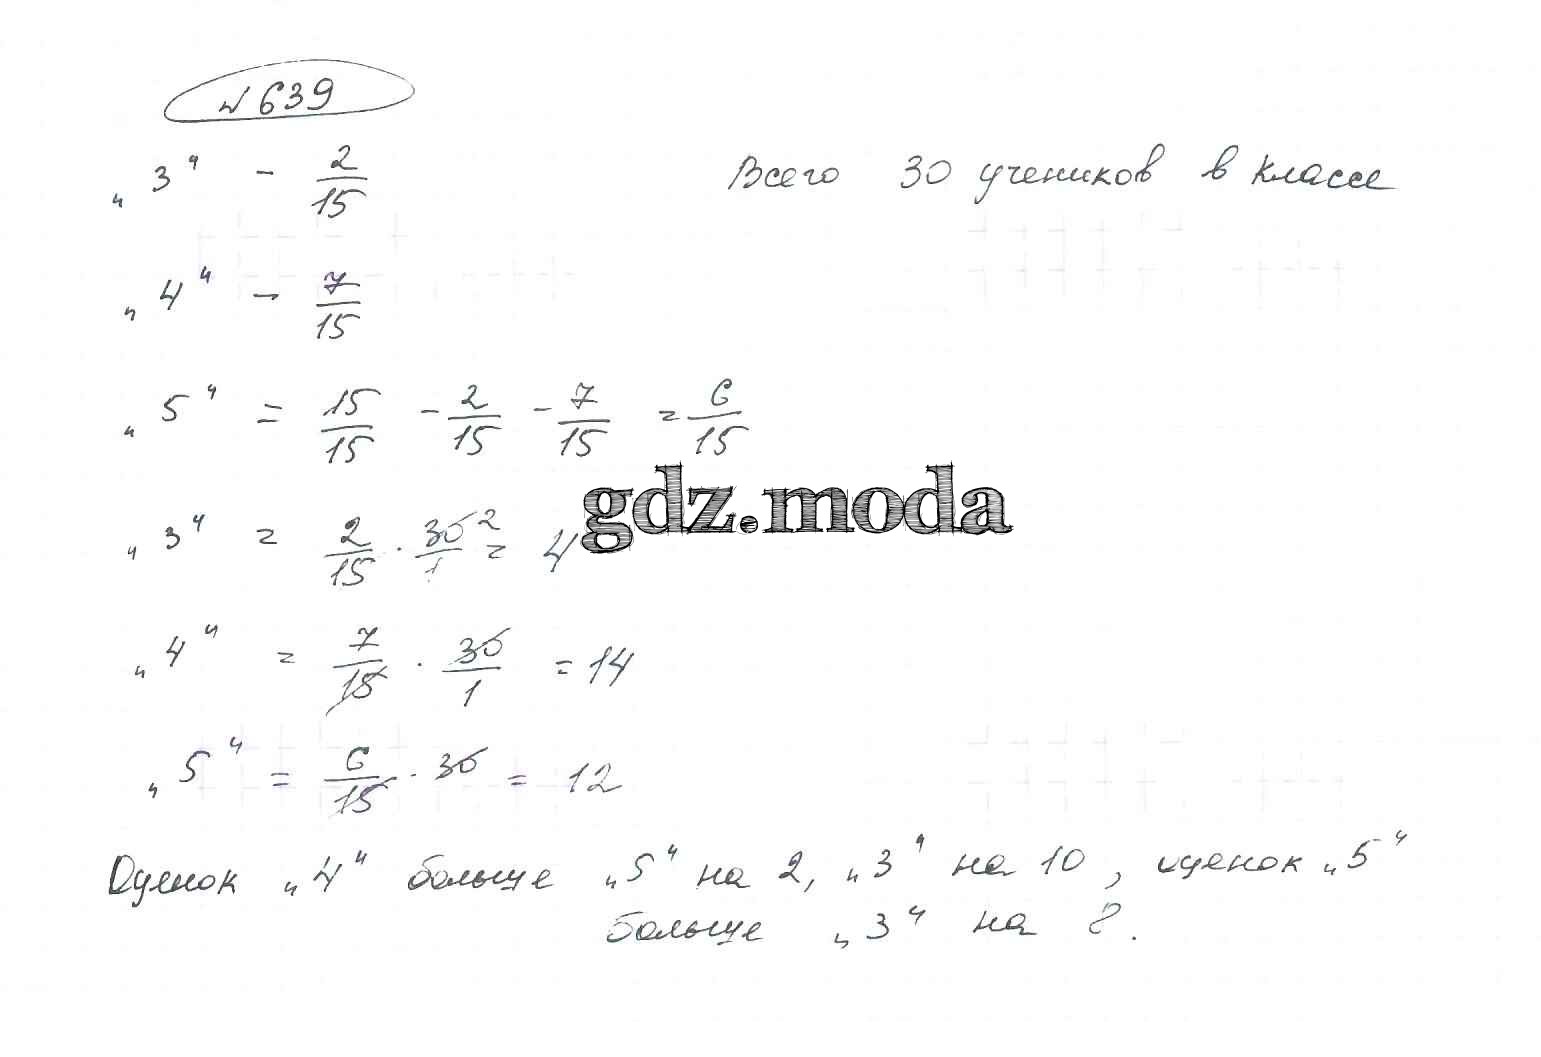 № 639
„3“ - 2/15 Всего 30 учеников в классе
„4“ - 7/15
„5“ = 15/15 - 2/15 - 7/15 = 6/15
gdz.moda
„3“ = 2/15 · 30/1 2 = 4
„4“ = 7/15 · 30/1 = 14
„5“ = 6/15 · 30 = 12
Оценок „4“ больше „5“ на 2, „3“ на 10, оценок „5“
больше „3“ на 8.